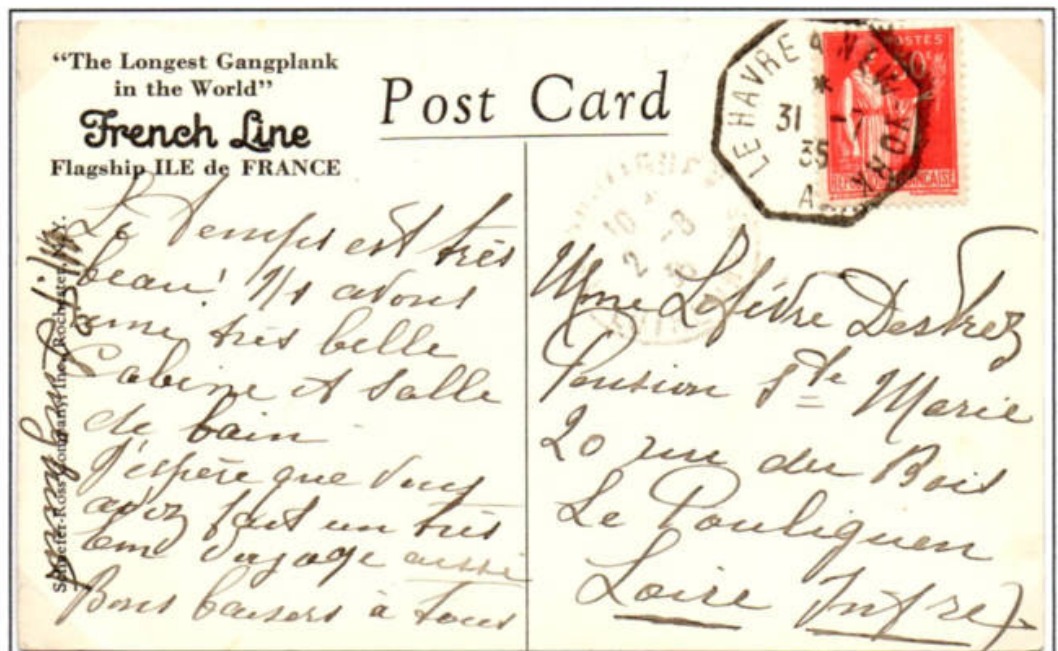 "The Longest Gangplank
in the World"
French Line
Flagship ILE de FRANCE
Post Card
LE HAVRE A NEW YORK
*
31 -7
35
POSTES
50c
Le Temps est très
beau! Ns avons
une très belle
Cabine et Salle
de bain
J'espère que vous
avez fait un très
bon voyage aussi
Bons baisers à tous
Company, Inc., Rochester, N.Y.
10
2 -8
35
Mme Lefèvre Destrez
Pension Ste Marie
20 rue du Bois
Le Pouliguen
Loire Infre)